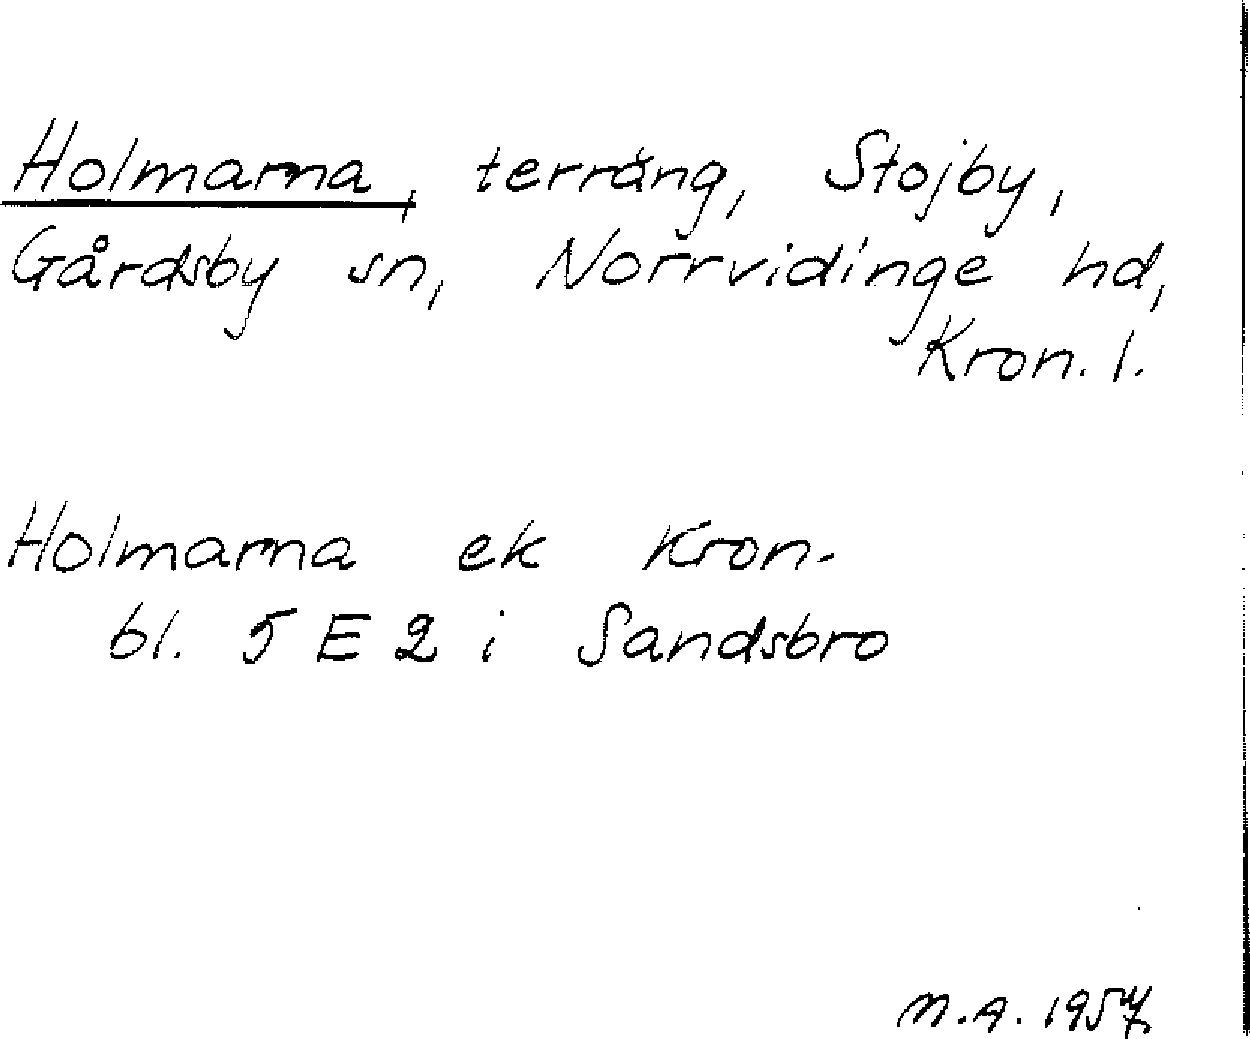 Holmarna, terräng, Stojby,
Gårdsby sn, Norrvidinge hd,
Kron. l.
Holmarna ek Kron-
bl. 5 E 2 i Sandsbro
M.A. 1957